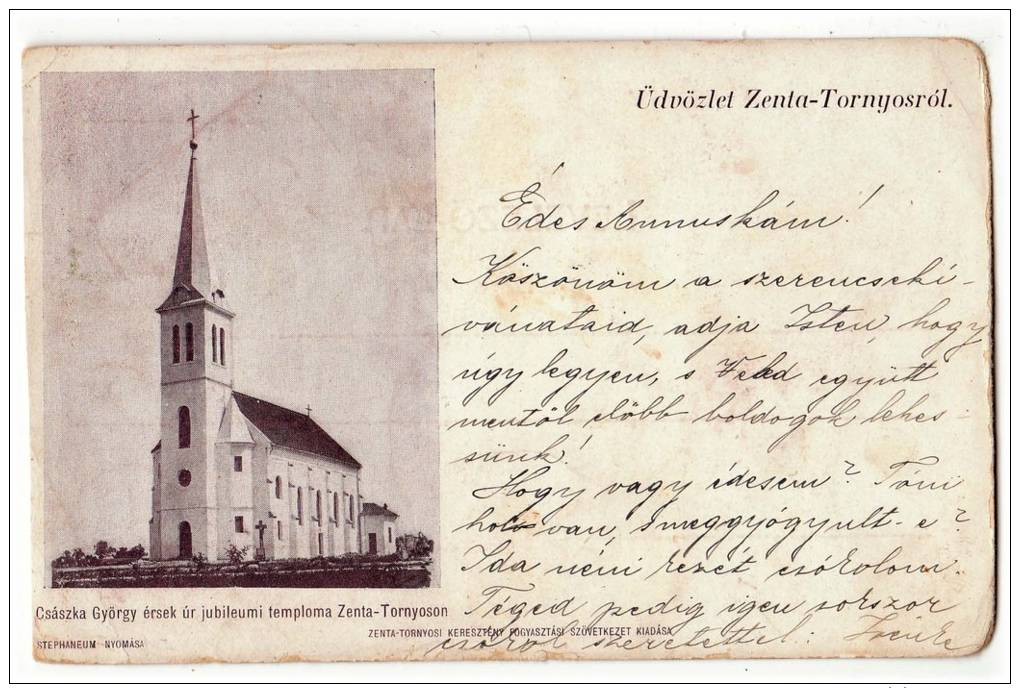 Üdvözlet Zenta-Tornyosról.
Édes Annuskám!
Köszönöm a szerencseki-
vánataid, adja Isten, hogy
úgy legyen, s Veled együtt
mentől előbb boldogok lehes-
sünk!
Hogy vagy édesem? Tóni
hol van, s meggyógyult-e?
Ida néni kezét csókolom.
Téged pedig igen sokszor
csókol szeretettel:
Császka György érsek úr jubileumi temploma Zenta-Tornyoson
ZENTA-TORNYOSI KERESZTÉNY FOGYASZTÁSI SZÖVETKEZET KIADÁSA
STEPHANEUM NYOMÁSA